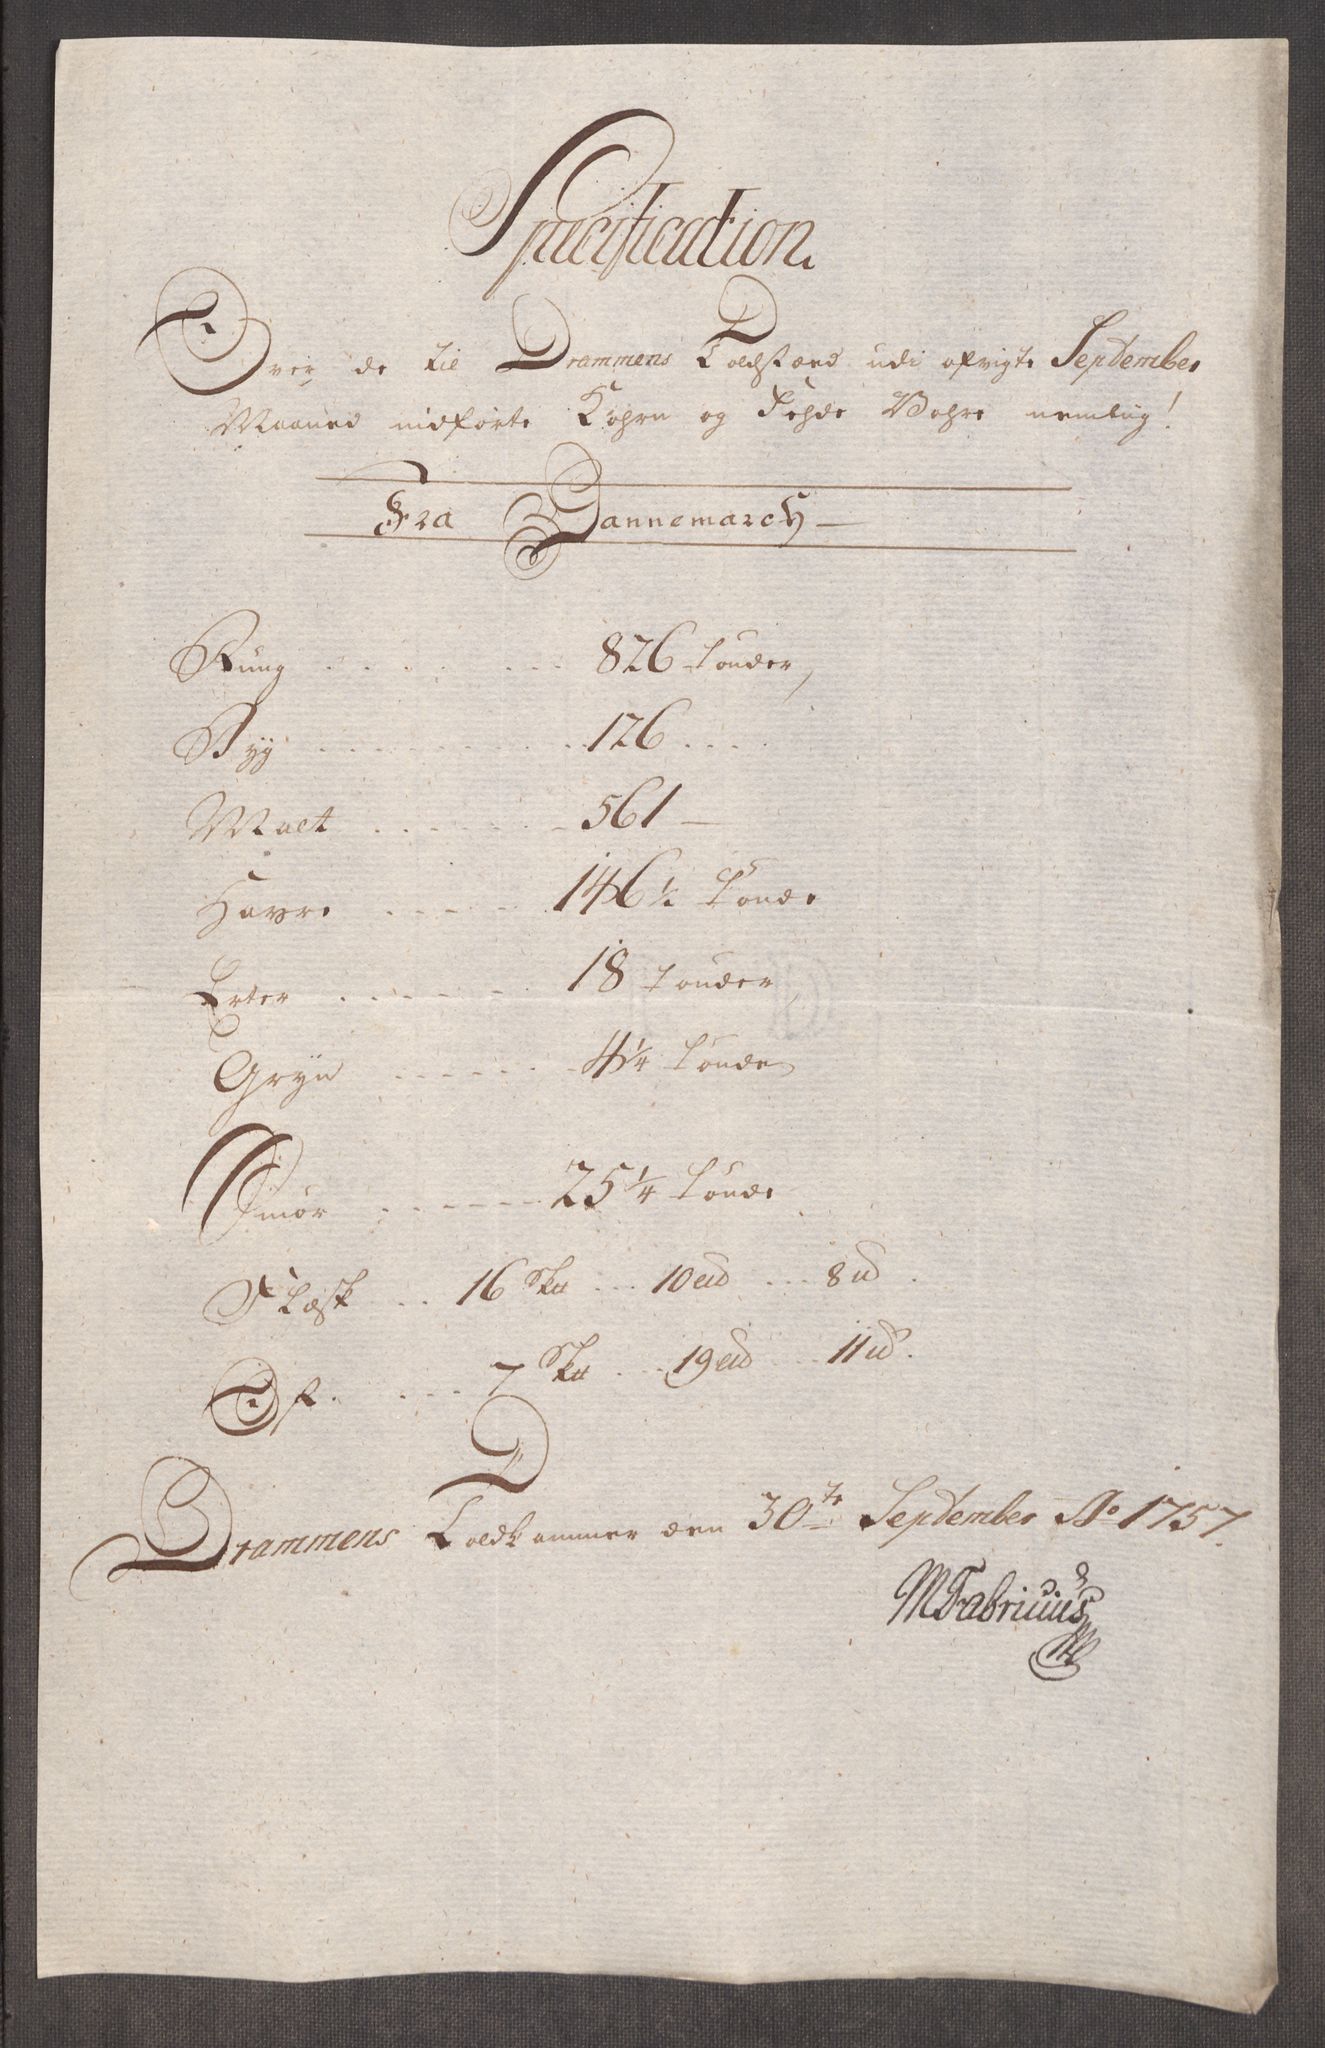 Specification
Over de til Drammens Toldsted udi afvigte September
Maaned indførte Kohrn og Fehde Vahre nemlig!
Fra Dannemarch
Rung . . . . . . 826 tønder,
Byg . . . . . . 126 . . . .
Malt . . . . . . 561 —
Havre . . . . . 146 ½ Tønde
Erter . . . . . . 18 tønder
Gryn . . . . . . 4 ¼ Tønde
Smør . . . . . . 25 ¼ Tønde
Flæsk . . 16 Sk℔ . . . 10 L℔ . . . 8 ℔ .
Ost . . . . 7 Sk℔ . . . 19 L℔ . . . 11 ℔ .
Drammens Toldkammer den 30te September Ao 1757.
MFabricius